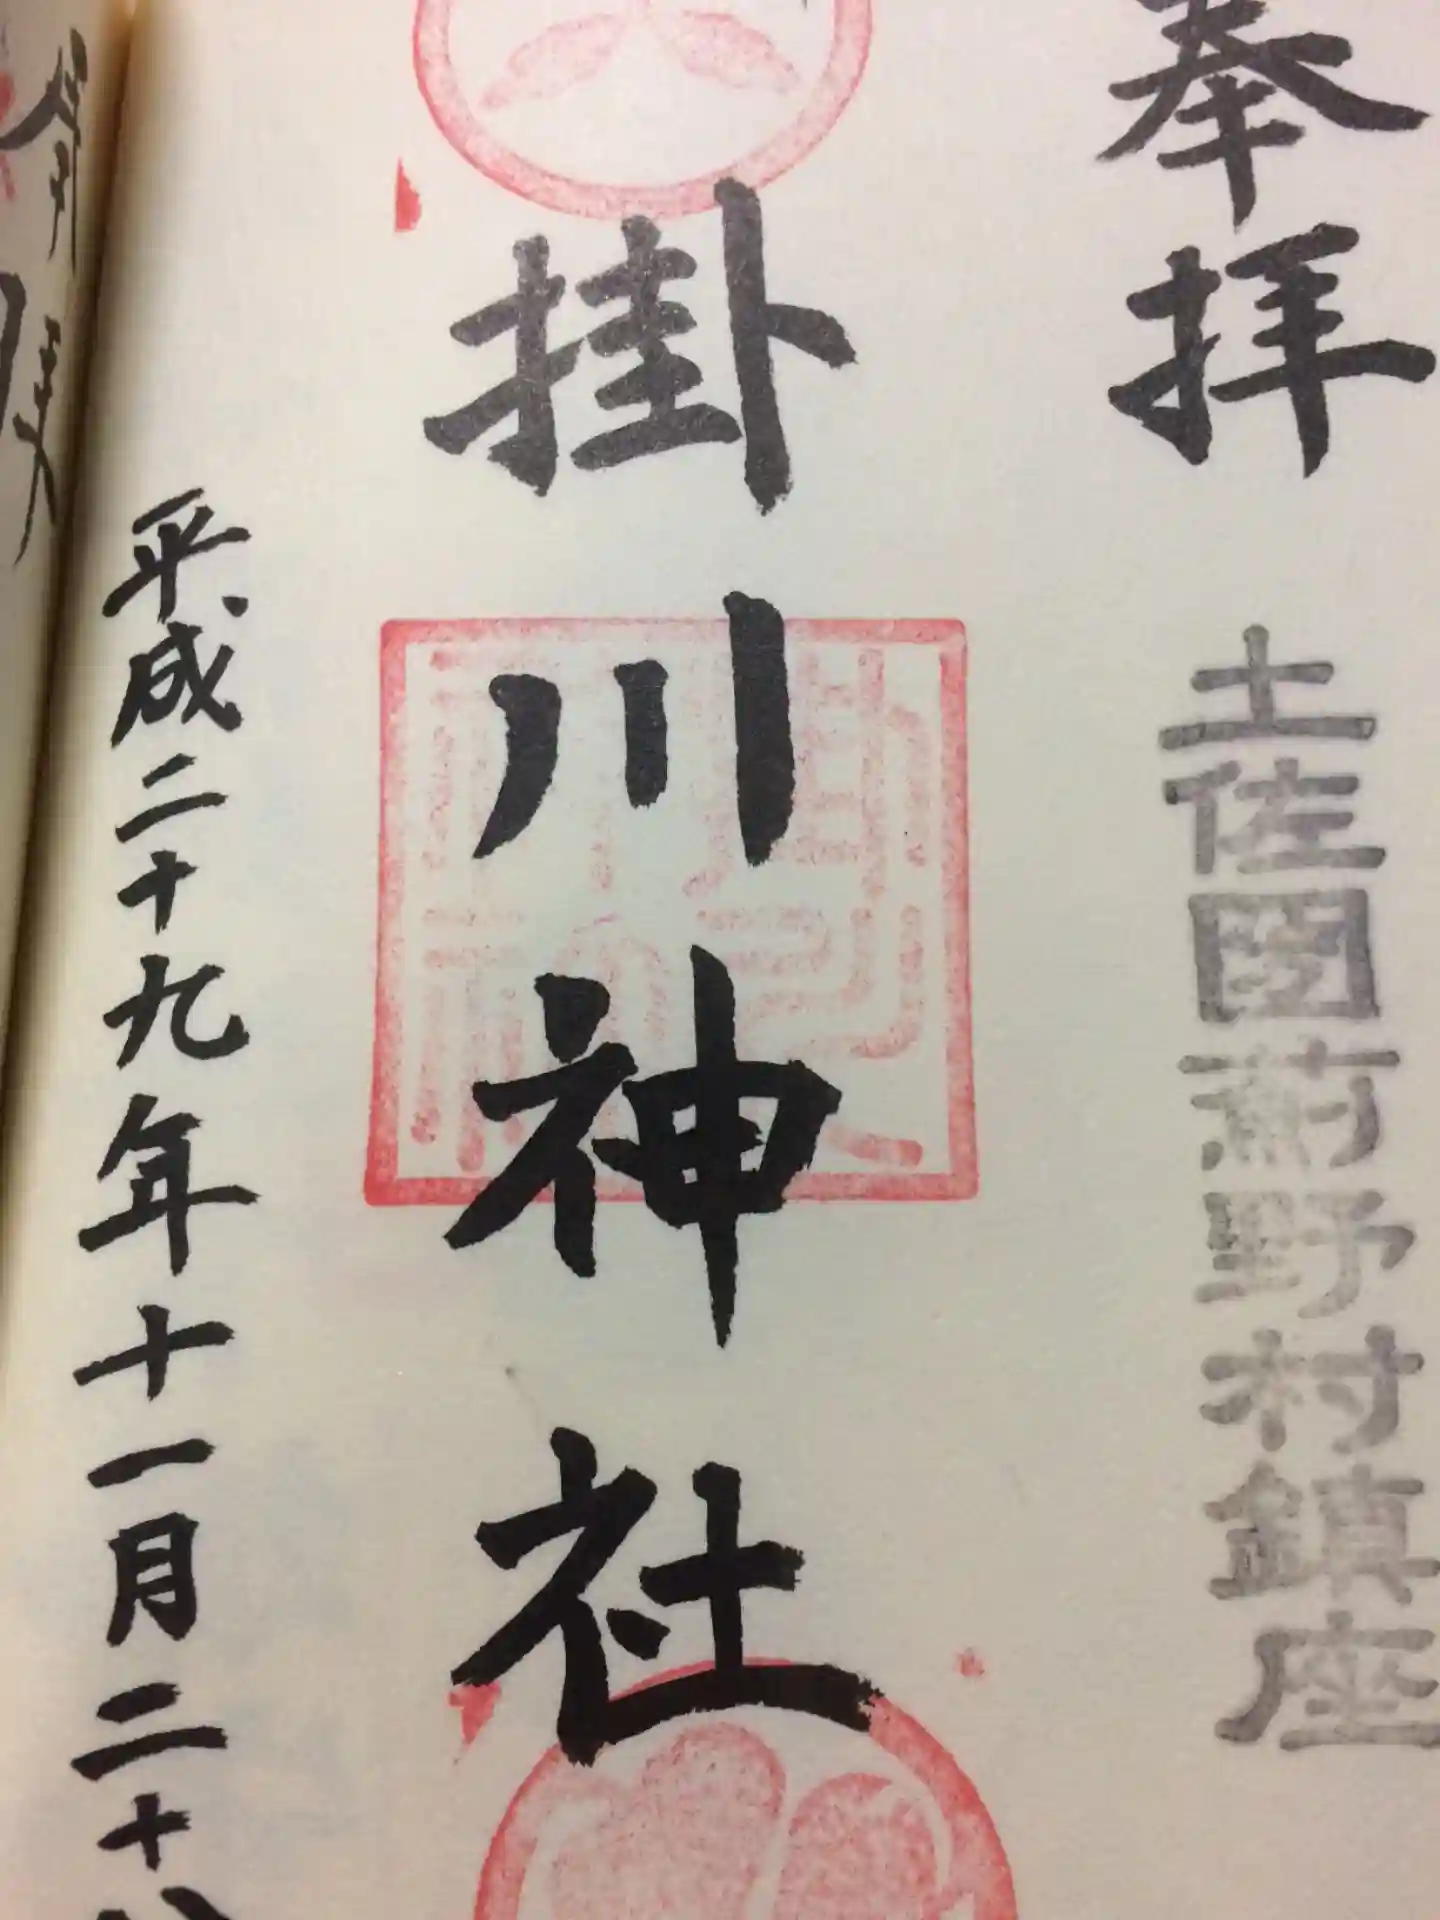 奉拝
土佐國薊野村鎮座
掛川神社
平成二十九年十一月二十八